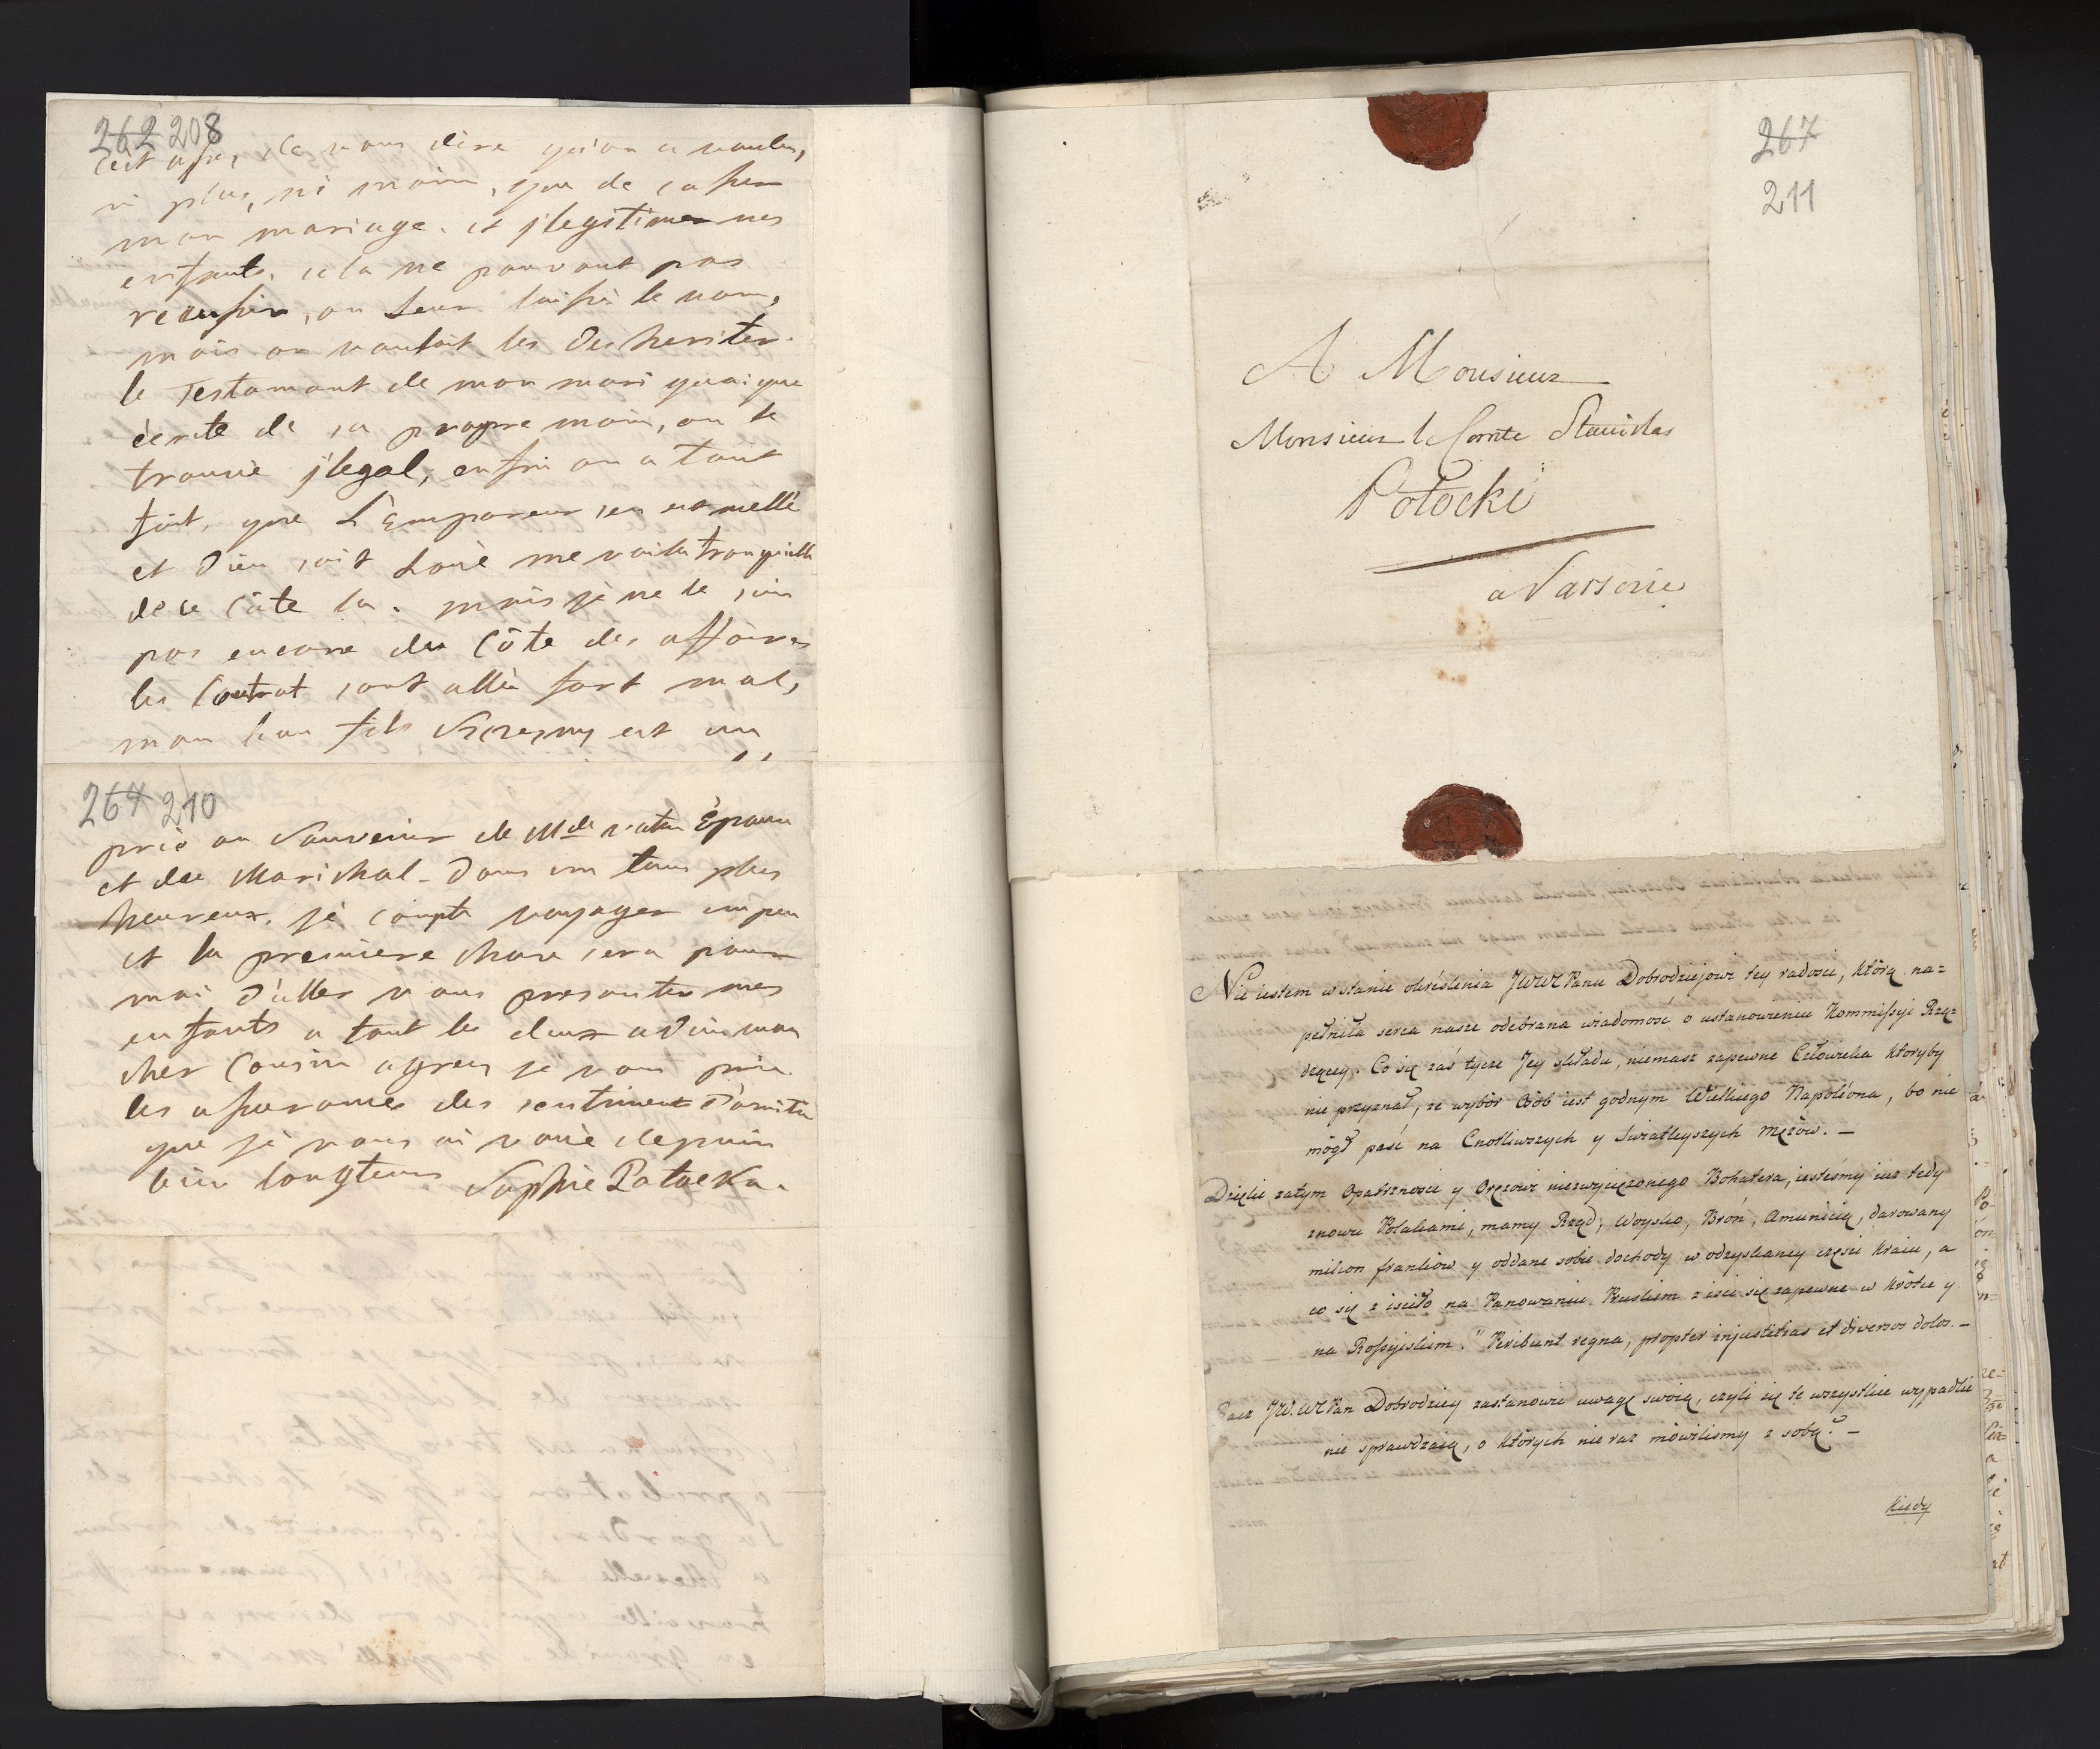 262 208
c'est assez de vous dire qu'on a voulu,
ni plus, ni moin, que de casser
mon mariage. et jlegitimer mes
enfants, cela ne pouvant pas
reeussir, on Leur laissè le nom,
mais on vouloit les des heriter.
le Testamant de mon mari quoique
écrite de sa propre main, on le
trouvè jlegal, enfin on a tant
fait, que L'Empereur s'en est mellè
et Dieu soit Louè me voila tranquille
de ce Côte la. mais je ne le suis
pas encore du Côte des affaires
les Contrat sont allè fort mal,
mon bau fils Szczesny est un
264 210
prie au Souvenir de Mde votre Épouse
et du Marichal. Dans un tems plus
heureux, jè compte voyager un peu
et la premiere chose sera pour
moi d'aller vous presanter mes
enfants a tout les deux adieu mon
cher Cousin agreez jè vous prie
les assurances des sentiment d'amitie
que jè vous ai vouè depuis
bien longtems Sophie Potocka.
267
211
A Monsieur
Monsieur l Comte Stanislas
Potocki
a Varsovie
Nie iestem w stanie okréslenia JWW Panu Dobrodziejowi tey radosci, którą na=
pełniła serca nasze odebrana wiadomość o ustanowieniu Kommissyi Rzą=
dzącey. Co się zaś tycze Jey składu, niemasz zapewne Człowieka któryby
nie przyznał, ze wybór Osób iest godnym Wielkiego Napoléona, bo nie
mógł paść na Cnotliwszych y Swiatleyszych Mężów. —
Dzięki zatym Opatrznosci y Orężowi niezwyciężonego Bohatera, iesteśmy iuz tedy
znowu Polakami, mamy Rząd, Woysko, Broń, Amunicią, darowany
milion franków y oddane sobie dochody w odzyskaney części Kraiu, a
co się z iściło na Panowaniu Pruskim z iści się zapewne w krótce y
na Rossyiskim. "Peribunt regna, propter injustitias et diversos dolos. —
Racz JW. W Pan Dobrodziey zastanowić uwagę swoią, czyli się te wszystkie wypadki
nie sprawdzaią, o których nie raz mówilismy z sobą? —
Kiedy